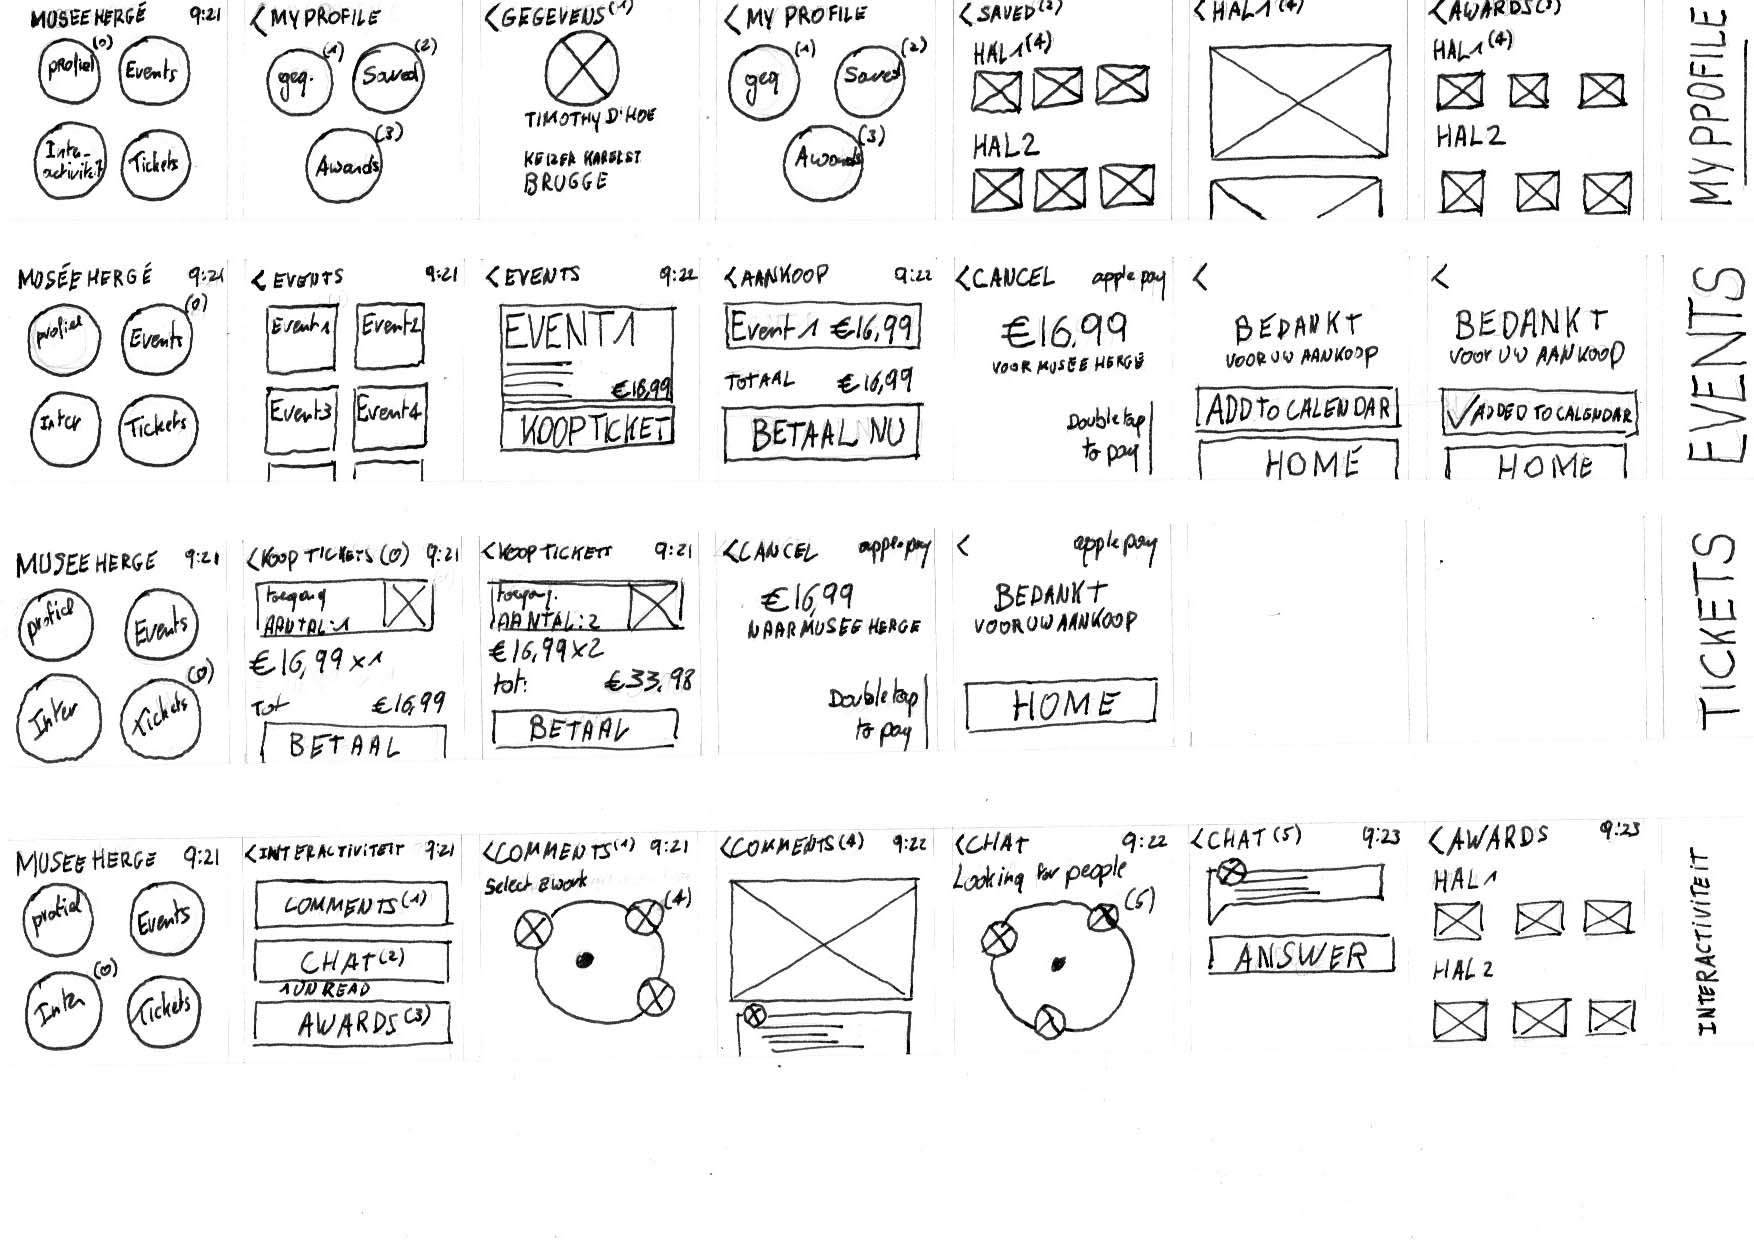 MUSEE HERGÉ 9:21
profiel (0) Events
Inter-activiteit Tickets
<MY PROFILE
geg. (1) Saved (2)
Awards (3)
<GEGEVENS (1)
TIMOTHY D'HOE
KEIZER KARELST
BRUGGE
<MY PROFILE
geg (1) Saved (2)
Awards (3)
<SAVED (2)
HAL1 (4)
HAL2
<HAL1 (4)
<AWARDS (3)
HAL1 (4)
HAL2
MY PPOFILE
MUSÉE HERGÉ 9:21
profiel Events (0)
Inter Tickets
<EVENTS 9:21
Event1 Event2
Event3 Event4
<EVENTS 9:22
EVENT1
€16,99
KOOP TICKET
<AANKOOP 9:22
Event 1 €16,99
TOTAAL €16,99
BETAAL NU
<CANCEL apple pay
€16,99
VOOR MUSÉE HERGÉ
Double tap
to pay
<
BEDANKT
VOOR UW AANKOOP
ADD TO CALENDAR
HOME
<
BEDANKT
VOOR UW AANKOOP
✓ADDED TO CALENDAR
HOME
EVENTS
MUSEE HERGE 9:21
profiel Events
Inter Tickets (0)
<KOOP TICKETS (0) 9:21
toegang
AANTAL:1
€16,99 x1
Tot €16,99
BETAAL
<KOOP TICKETS 9:21
toegang.
AANTAL:2
€16,99x2
tot: €33,98
BETAAL
<CANCEL apple pay
€16,99
NAAR MUSEE HERGE
Double tap
to pay
< apple pay
BEDANKT
VOOR UW AANKOOP
HOME
TICKETS
MUSEE HERGE 9:21
profiel Events
Inter (0) Tickets
<INTERACTIVITEIT 9:21
COMMENTS (1)
CHAT (2)
1 UNREAD
AWARDS (3)
<COMMENTS (1) 9:21
Select a work
(4)
<COMMENTS (4) 9:22
<CHAT 9:22
Looking for people
(5)
<CHAT (5) 9:23
ANSWER
<AWARDS 9:23
HAL1
HAL2
INTERACTIVITEIT